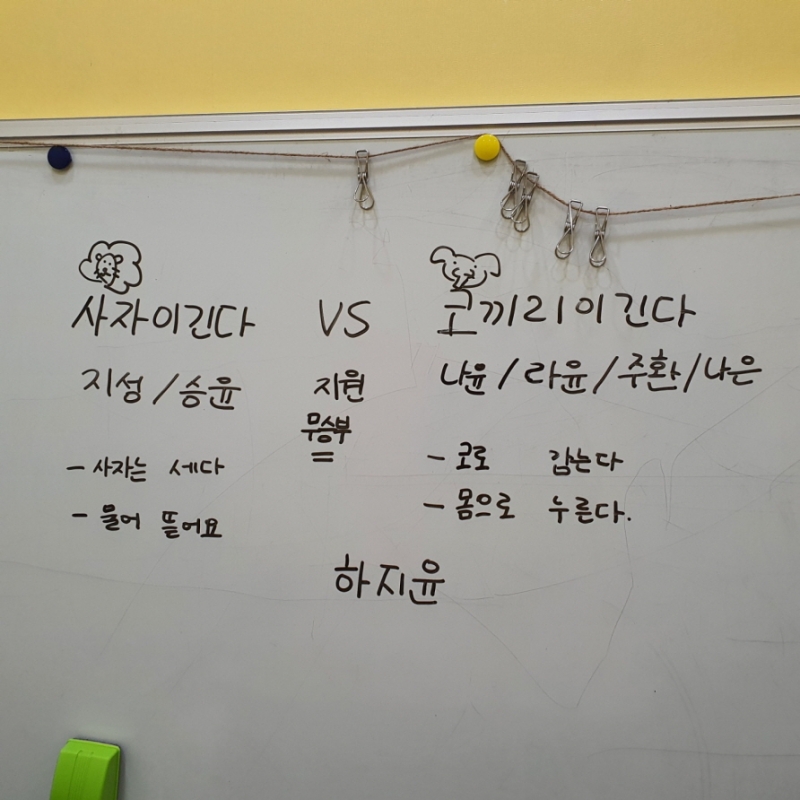 사자이긴다 VS 코끼리이긴다
지성/승윤 지원 나윤/라윤/주환/나은
무승부
=
- 사자는 세다 - 코로 감는다
- 물어 뜯어요 - 몸으로 누른다.
하지윤